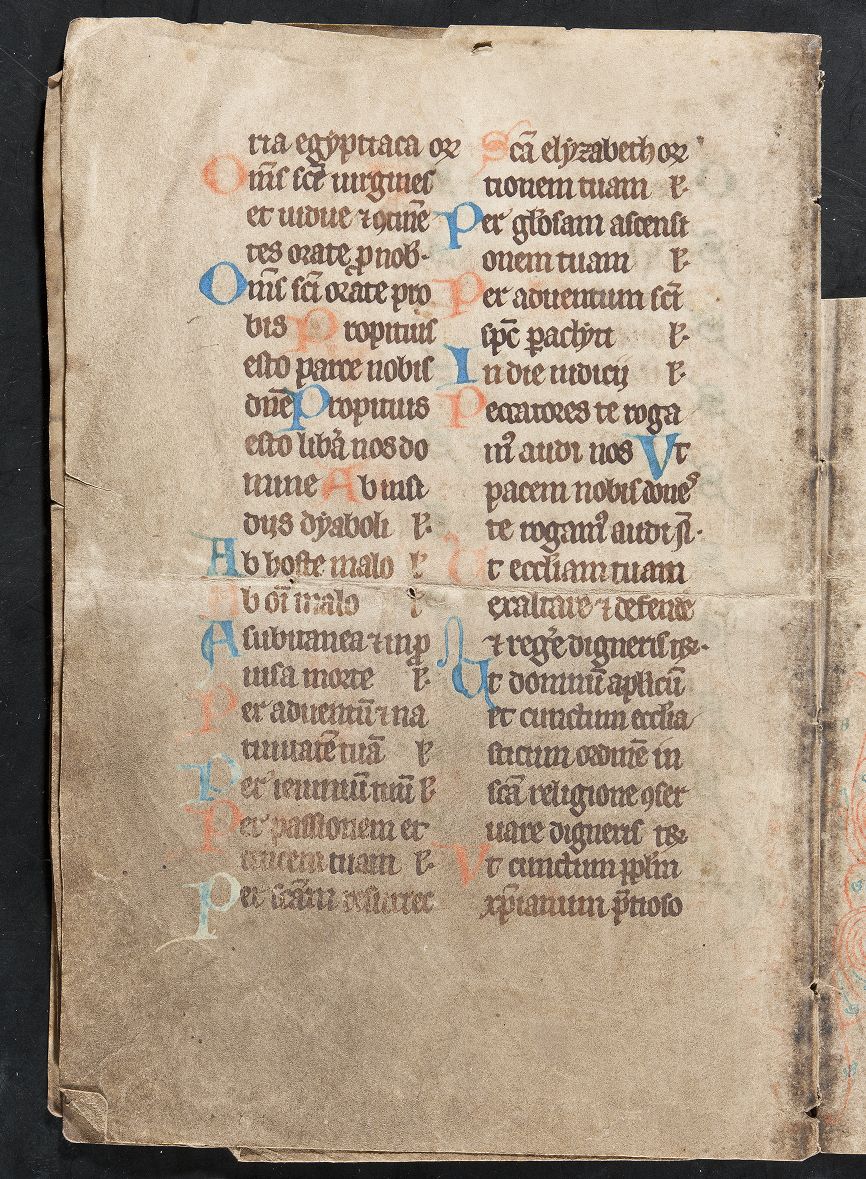 ria egyptiaca or
Om̄s sc̄e uirgines
et uidue ⁊ ꝯtine
tes orate ꝓ nob·
Om̄s sc̄i orate pro
bis Propitius
esto parce nobis
dn̄e Propitius
esto lib̾a nos do
mine Ab insi
dijs dyaboli ℟·
Ab hoste malo ℟
Ab oī malo ℟
A subitanea ⁊ inp̱ro
uisa morte ℟·
Per aduentū ⁊ na
tiuitatē tuā ℟
Per ieiuniū tuū ℟
Per passionem et
crucem tuam ℟·
Per sc̄am resurrec
Sc̄a elyzabeth or
tionem tuam ℟·
Per gl̄osam ascensi
onem tuam ℟·
Per aduentum sc̄i
sp̄c paclyti ℟·
In die iudicij ℟·
Peccatores te roga
mꝰ audi nos Vt
pacem nobis doneꝰ
te rogamꝰ audi n̄·
Ut eccl̄iam tuam
exaltare ⁊ defende
⁊ reg̾e digneris
Ut domnū ap̄licū
et cunctum ecclia
sticum ordinē in
sc̄a religione ꝯser
uare digneris
Vt cunctum pp̄lm
xp̄ianum p̄tioso